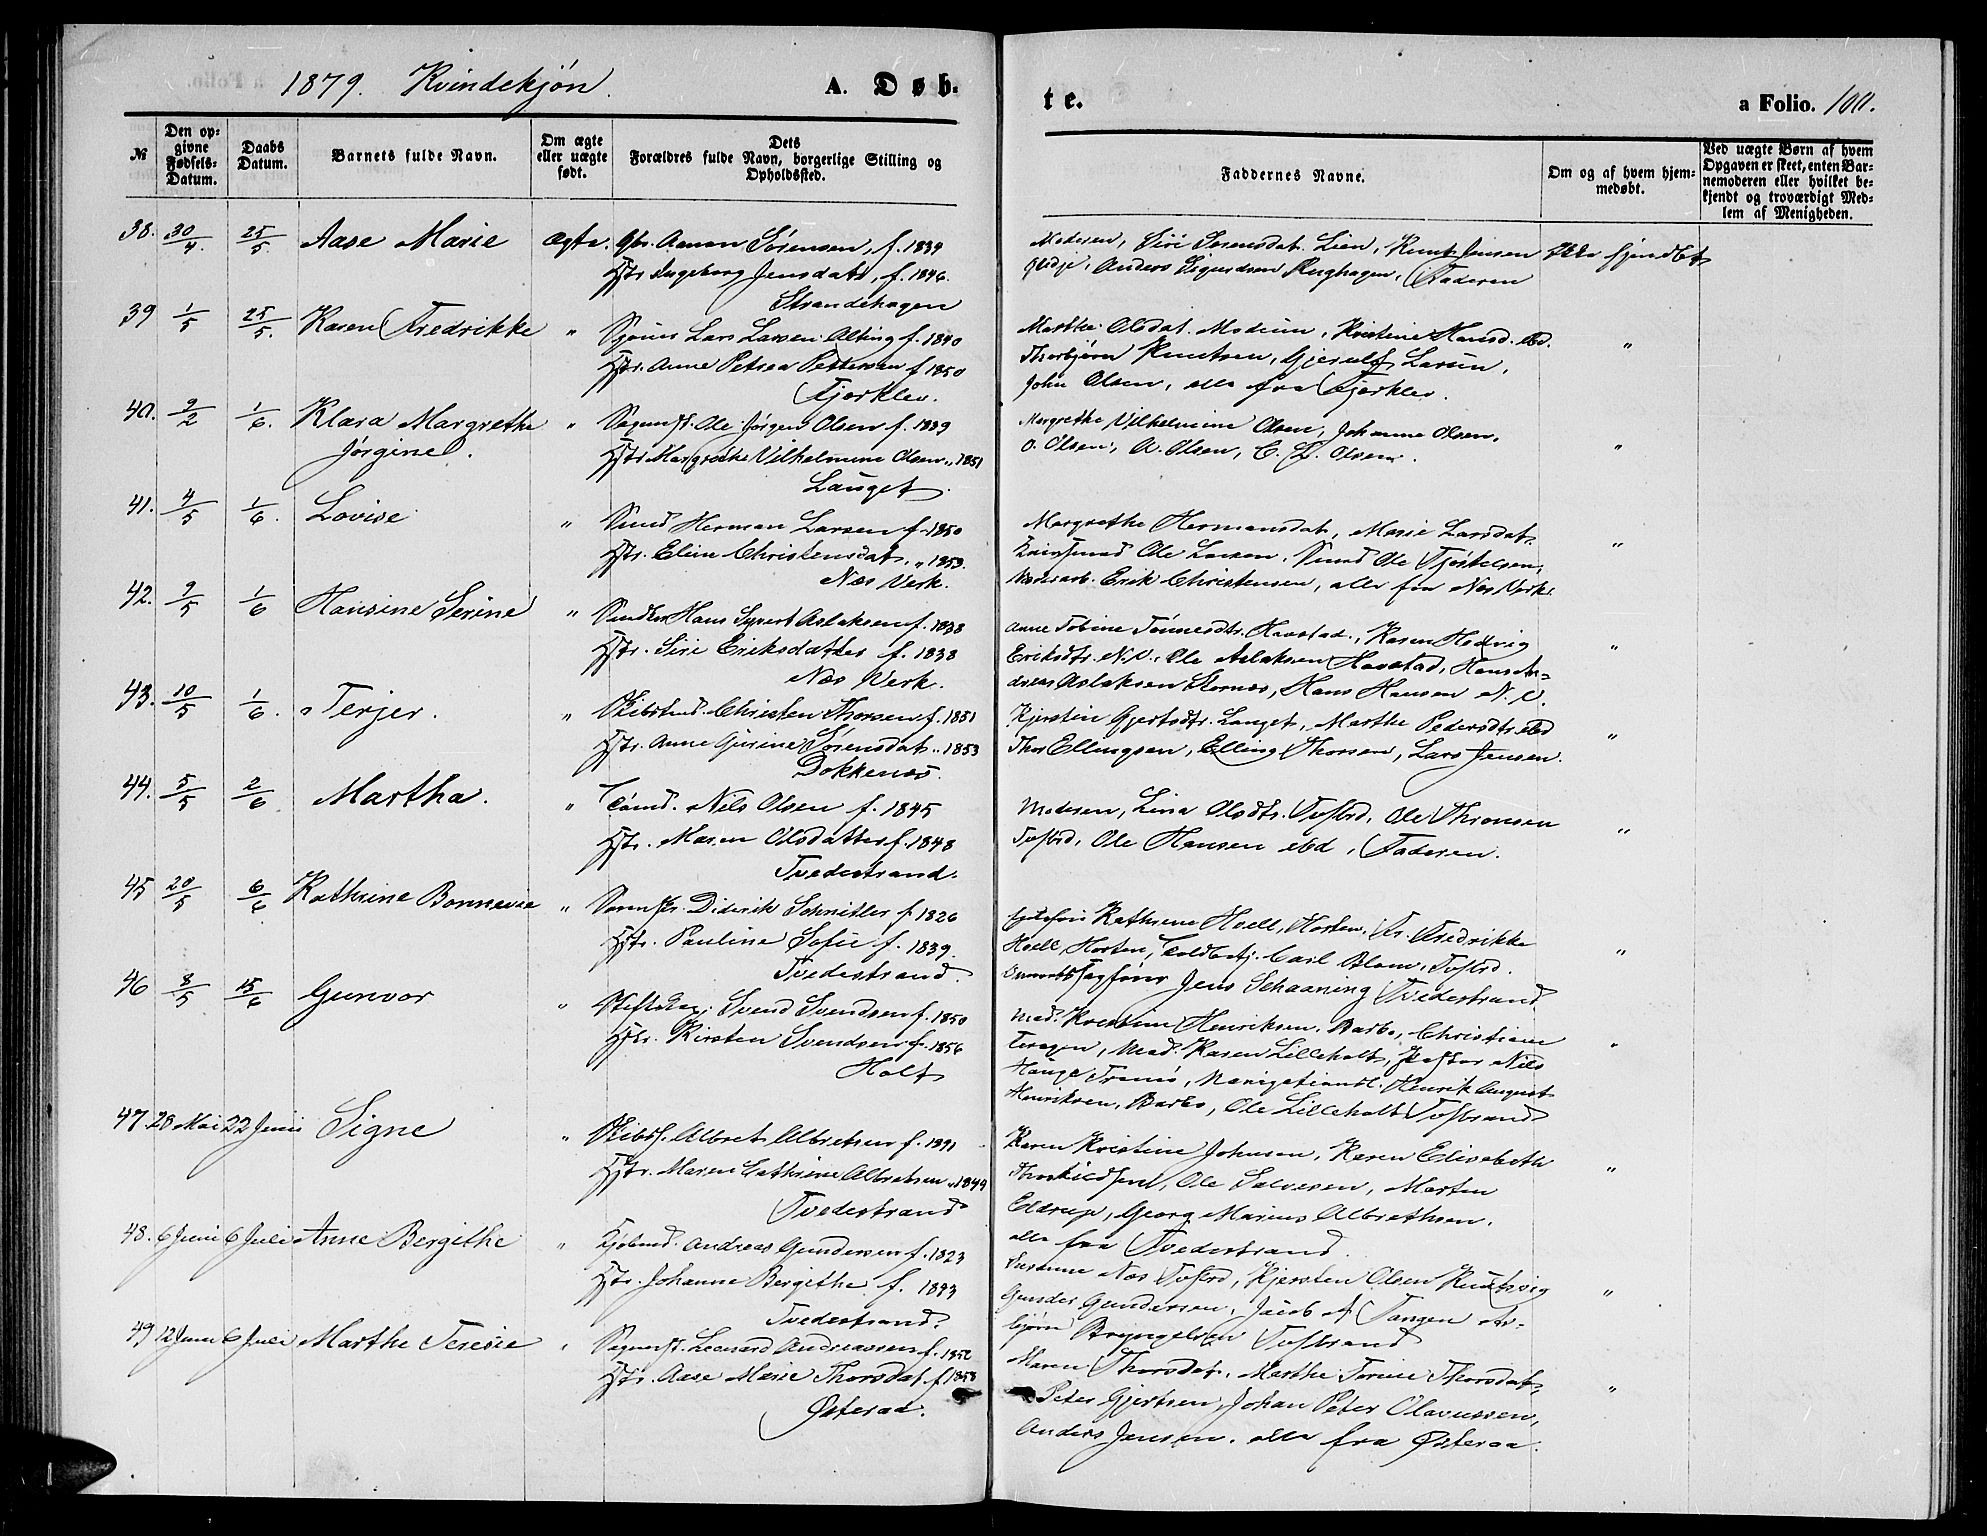 1879. Kvindekjøn. A. Døb-
te. a Folio. 100.
№
Den op-
givne
Fødsels-
Datum.
Daabs
Datum.
Barnets fulde Navn.
Om ægte
eller uægte
født.
Dets
Forældres fulde Navn, borgerlige Stilling og
Opholdssted.
Faddernes Navne.
Om og af hvem hjem-
medøbt.
Ved uægte Børn af hvem
Opgaven er skeet, enten Bar-
nemoderen eller hvilket be-
kjendt og troværdigt Med-
lem af Menigheden.
38. 30/4 25/5 Aase Marie Ægte. Gbr. Aanon Sørensen, f. 1839
Hstr. Ingeborg Jensdatt, f. 1846.
Strandehagen
Moderen, Siri Sørensdat. Lien, Knut Jensen
Anders Sigurdsen Rughagen, Faderen
Ikke hjemdbt
39 1/5 25/5. Karen Fredrikke " Lars Larsen Alting f. 1840
Hstr. Anne Petrea Pettersen f 1850
Fjerklev.
Marthe Olsdat. Modum, Kristine Hansd. ibd.
Thorbjørn Knutsen, Gjerulf Larsen,
John Olsen, alle fra Fjerklev. "
40. 9/2 1/6. Klara Margrethe " Ole Jørgen Olsen f. 1839
Jørgine. Hstr. Margrethe Vilhelmine Olsen " 1851
Lauget
Margrethe Vilhelmine Olsen, Johanne Olsen,
O. Olsen, A. Olsen, C. L. Olsen. "
41. 4/5 1/6. Lovise " Smed Herman Larsen f. 1850
Hstr. Elen Christensdat. " 1853.
Næs Verk.
Margrethe Hermansdat, Marie Larsdat.
Ole Larsen, Smed Ole Tjøstelsen,
Erik Christensen, alle fra Næs Verk. "
42. 9/5 1/6 Hansine Serine " Hans Syvert Aslaksen f. 1838
Hstr. Siri Eriksdatter f. 1838
Næs Verk.
Anne Tobine Tønnesdtr. Havstad, Karen Hedvig
Eriksdtr. N.V., Ole Aslaksen Havstad, Hans An-
dreas Aslaksen Hornæs, Hans Hansen N. V. "
43. 10/5 1/6. Terjer. " Skibstmd. Christen Thorsen f. 1851
Hstr. Anne Gurine Sørensdat " 1853
Dokkenæs.
Kjerstin Gjertsdtr. Lauget, Marthe Pedersdtr. ibd
Thor Ellingsen, Elling Thorsen, Lars Jensen. "
44. 5/5 2/6 Martha. " Tømd. Nils Olsen f. 1845
Hstr. Maren Olsdatter f. 1848
Tvedestrand.
Moderen, Lina Olsdtr. Tvstrd, Ole Thronsen
Tvstrd, Ole Hansen ibd, Faderen. "
45 20/5 6/6 Kathrine Bonnevie " Diderik Schnitler f 1826
Hstr. Pauline Sofie f. 1839.
Tvedestrand
Kathrine Hoell, Horten, Fr. Fredrikke
Hoell, Horten, Toldbetj. Carl Blom, Tvstrd.
Jens Schaaning Tvedestrand "
46 8/5 15/6 Gunvor " Svend Svendsen f. 1850
Hstr. Kirsten Svendsen f. 1856
Holt
Mad. Kristine Henriksen, Barbo, Christiane
Mad. Karen Lilleholt, Pastor Nils
Hauge Tromø, Henrik August
Henriksen, Barbo, Ole Lilleholt Tvstrand "
47. 28 Mai 22 Juni Signe " Skibsf. Albret Albretsen f. 1841
Hstr. Maren Cathrine Albretsen " 1849
Tvedestrand
Karen Kristine Johnsen, Karen Elisabeth
Ole Salvesen, Morten
Eldrup, Georg Marius Albrethsen,
alle fra Tvedestrand. "
48. 6 Juni 6 Juli Anne Bergithe " Kjøbmd. Andreas Gundersen f. 1823
Hstr. Johanne Bergithe f. 1843
Tvedestrand.
Susanne Næs Tvstrd, Kjersten Olsen
Gunder Gundersen, Jacob A Tangen As-
bjørn Bryngelsen Tvstrand "
49 12 Juni 6 Juli Marthe Teresie " Leonard Andreassen f. 1852
Hstr. Aase Marie Thorsdat f 1858
Østeraa.
Maren Thorsdat, Marthe Tomine Thorsdat,
Peter Gjertsen, Johan Peter Olavussen,
Anders Jensen. alle fra Østeraa. "